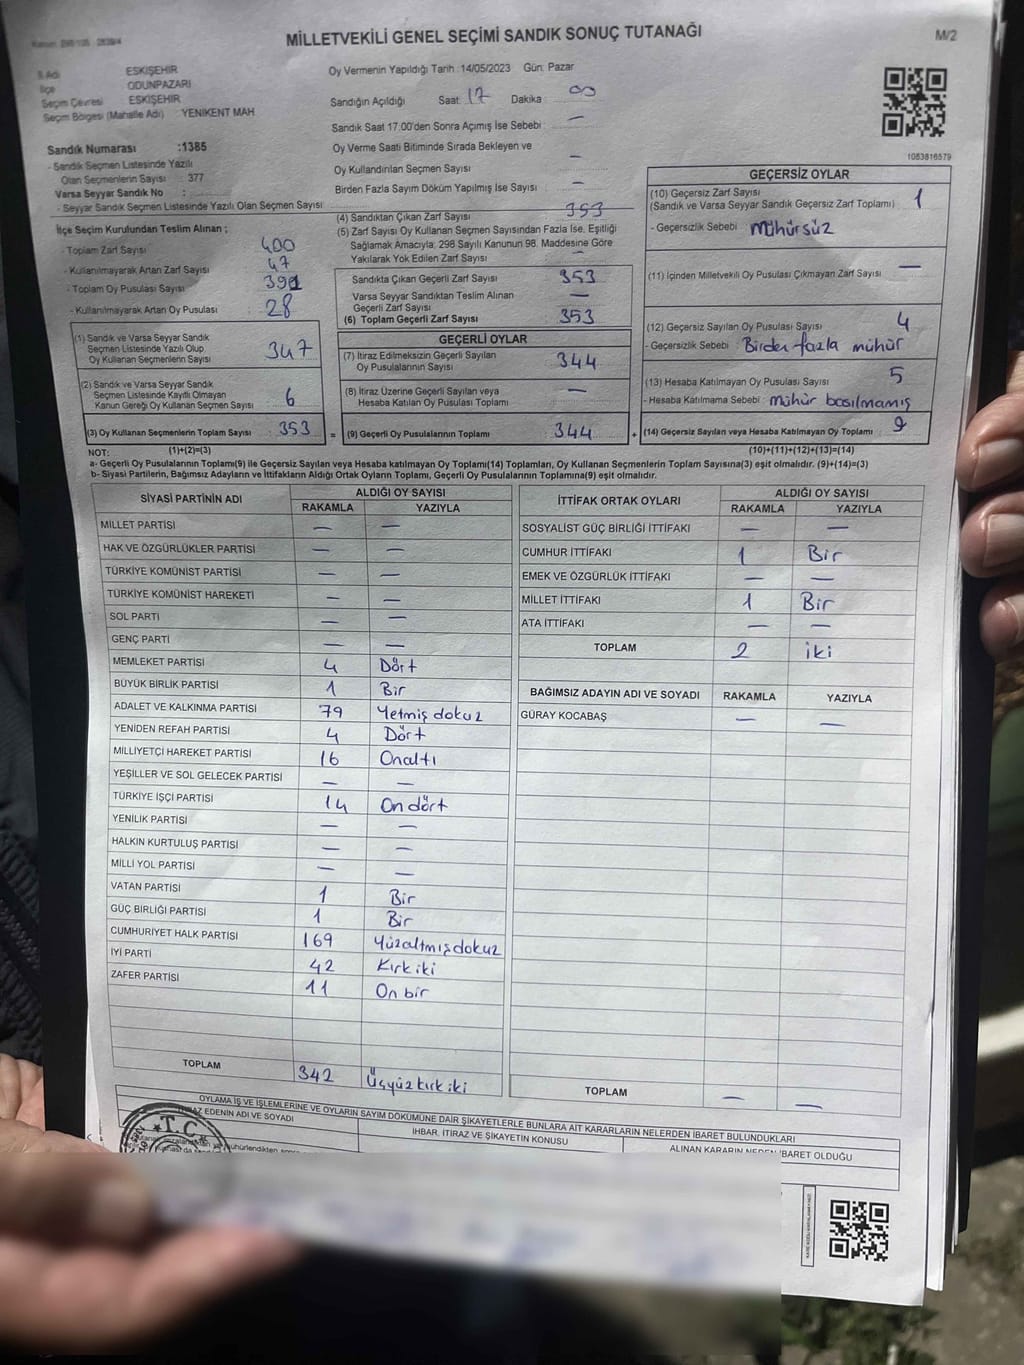 MİLLETVEKİLİ GENEL SEÇİMİ SANDIK SONUÇ TUTANAĞI
M/2
İl Adı ESKİŞEHİR
İlçe ODUNPAZARI
Seçim Çevresi ESKİŞEHİR
Seçim Bölgesi (Mahalle Adı) YENİKENT MAH
Sandık Numarası :1385
- Sandık Seçmen Listesinde Yazılı
Olan Seçmenlerin Sayısı : 377
Varsa Seyyar Sandık No :
- Seyyar Sandık Seçmen Listesinde Yazılı Olan Seçmen Sayısı :
Oy Vermenin Yapıldığı Tarih :14/05/2023 Gün: Pazar
Sandığın Açıldığı Saat 17 Dakika 00
Sandık Saat 17:00'den Sonra Açımış İse Sebebi : —
Oy Verme Saati Bitiminde Sırada Bekleyen ve
Oy Kullandırılan Seçmen Sayısı —
Birden Fazla Sayım Döküm Yapılmış İse Sayısı —
1053816579
İlçe Seçim Kurulundan Teslim Alınan ;
- Toplam Zarf Sayısı 400
- Kullanılmayarak Artan Zarf Sayısı 47
- Toplam Oy Pusulası Sayısı
- Kullanılmayarak Artan Oy Pusulası 28
(1) Sandık ve Varsa Seyyar Sandık
Seçmen Listesinde Yazılı Olup
Oy Kullanan Seçmenlerin Sayısı 347
(2) Sandık ve Varsa Seyyar Sandık
Seçmen Listesinde Kayıtlı Olmayan
Kanun Gereği Oy Kullanan Seçmen Sayısı 6
(3) Oy Kullanan Seçmenlerin Toplam Sayısı 353
(4) Sandıktan Çıkan Zarf Sayısı 353
(5) Zarf Sayısı Oy Kullanan Seçmen Sayısından Fazla İse, Eşitliği
Sağlamak Amacıyla; 298 Sayılı Kanunun 98. Maddesine Göre
Yakılarak Yok Edilen Zarf Sayısı —
Sandıkta Çıkan Geçerli Zarf Sayısı 353
Varsa Seyyar Sandıktan Teslim Alınan
Geçerli Zarf Sayısı —
(6) Toplam Geçerli Zarf Sayısı 353
GEÇERLİ OYLAR
(7) İtiraz Edilmeksizin Geçerli Sayılan
Oy Pusulalarının Sayısı 344
(8) İtiraz Üzerine Geçerli Sayılan veya
Hesaba Katılan Oy Pusulası Toplamı —
= (9) Geçerli Oy Pusulalarının Toplamı 344
GEÇERSİZ OYLAR
(10) Geçersiz Zarf Sayısı 1
(Sandık ve Varsa Seyyar Sandık Geçersiz Zarf Toplamı)
- Geçersizlik Sebebi mühürsüz
(11) İçinden Milletvekili Oy Pusulası Çıkmayan Zarf Sayısı —
(12) Geçersiz Sayılan Oy Pusulası Sayısı 4
- Geçersizlik Sebebi : Birden fazla mühür
(13) Hesaba Katılmayan Oy Pusulası Sayısı 5
- Hesaba Katılmama Sebebi : mühür basılmamış
+ (14) Geçersiz Sayılan veya Hesaba Katılmayan Oy Toplamı 9
NOT: (1)+(2)=(3) (10)+(11)+(12)+(13)=(14)
a- Geçerli Oy Pusulalarının Toplamı(9) ile Geçersiz Sayılan veya Hesaba katılmayan Oy Toplamı(14) Toplamları, Oy Kullanan Seçmenlerin Toplam Sayısına(3) eşit olmalıdır. (9)+(14)=(3)
b- Siyasi Partilerin, Bağımsız Adayların ve İttifakların Aldığı Ortak Oyların Toplamı, Geçerli Oy Pusulalarının Toplamına(9) eşit olmalıdır.
SİYASİ PARTİNİN ADI ALDIĞI OY SAYISI
RAKAMLA YAZIYLA
MİLLET PARTİSİ — —
HAK VE ÖZGÜRLÜKLER PARTİSİ — —
TÜRKİYE KOMÜNİST PARTİSİ — —
TÜRKİYE KOMÜNİST HAREKETİ — —
SOL PARTİ — —
GENÇ PARTİ — —
MEMLEKET PARTİSİ 4 Dört
BÜYÜK BİRLİK PARTİSİ 1 Bir
ADALET VE KALKINMA PARTİSİ 79 Yetmiş dokuz
YENİDEN REFAH PARTİSİ 4 Dört
MİLLİYETÇİ HAREKET PARTİSİ 16 Onaltı
YEŞİLLER VE SOL GELECEK PARTİSİ — —
TÜRKİYE İŞÇİ PARTİSİ 14 On dört
YENİLİK PARTİSİ — —
HALKIN KURTULUŞ PARTİSİ — —
MİLLİ YOL PARTİSİ — —
VATAN PARTİSİ 1 Bir
GÜÇ BİRLİĞİ PARTİSİ 1 Bir
CUMHURİYET HALK PARTİSİ 169 Yüzaltmışdokuz
İYİ PARTİ 42 Kırk iki
ZAFER PARTİSİ 11 On bir
TOPLAM 342 Üçyüz kırk iki
İTTİFAK ORTAK OYLARI ALDIĞI OY SAYISI
RAKAMLA YAZIYLA
SOSYALİST GÜÇ BİRLİĞİ İTTİFAKI — —
CUMHUR İTTİFAKI 1 Bir
EMEK VE ÖZGÜRLÜK İTTİFAKI — —
MİLLET İTTİFAKI 1 Bir
ATA İTTİFAKI — —
TOPLAM 2 iki
BAĞIMSIZ ADAYIN ADI VE SOYADI RAKAMLA YAZIYLA
GÜRAY KOCABAŞ — —
TOPLAM — —
OYLAMA İŞ VE İŞLEMLERİNE VE OYLARIN SAYIM DÖKÜMÜNE DAİR ŞİKAYETLERLE BUNLARA AİT KARARLARIN NELERDEN İBARET BULUNDUKLARI
EDENİN ADI VE SOYADI İHBAR, İTİRAZ VE ŞİKAYETİN KONUSU ALINAN KARARIN NEDEN İBARET OLDUĞU
T.C.